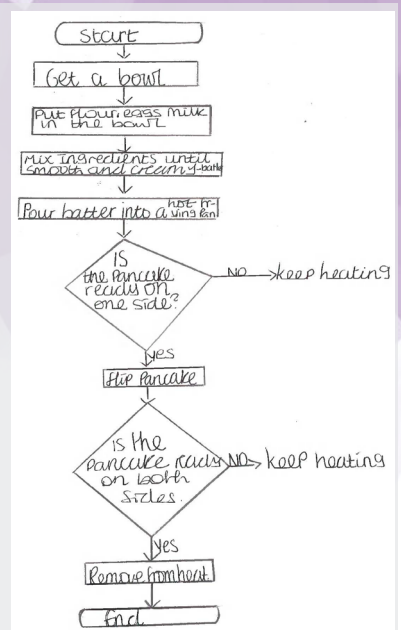 Start
Get a bowl
Put flour, eggs milk
in the bowl
Mix Ingredients until
smooth and creamy-batter
Pour batter into a hot fr-
ying pan
IS
the pancake
ready on
one side?
NO
keep heating
yes
flip pancake
is the
pancake ready
on both
sides.
NO
keep heating
yes
Remove from heat
End